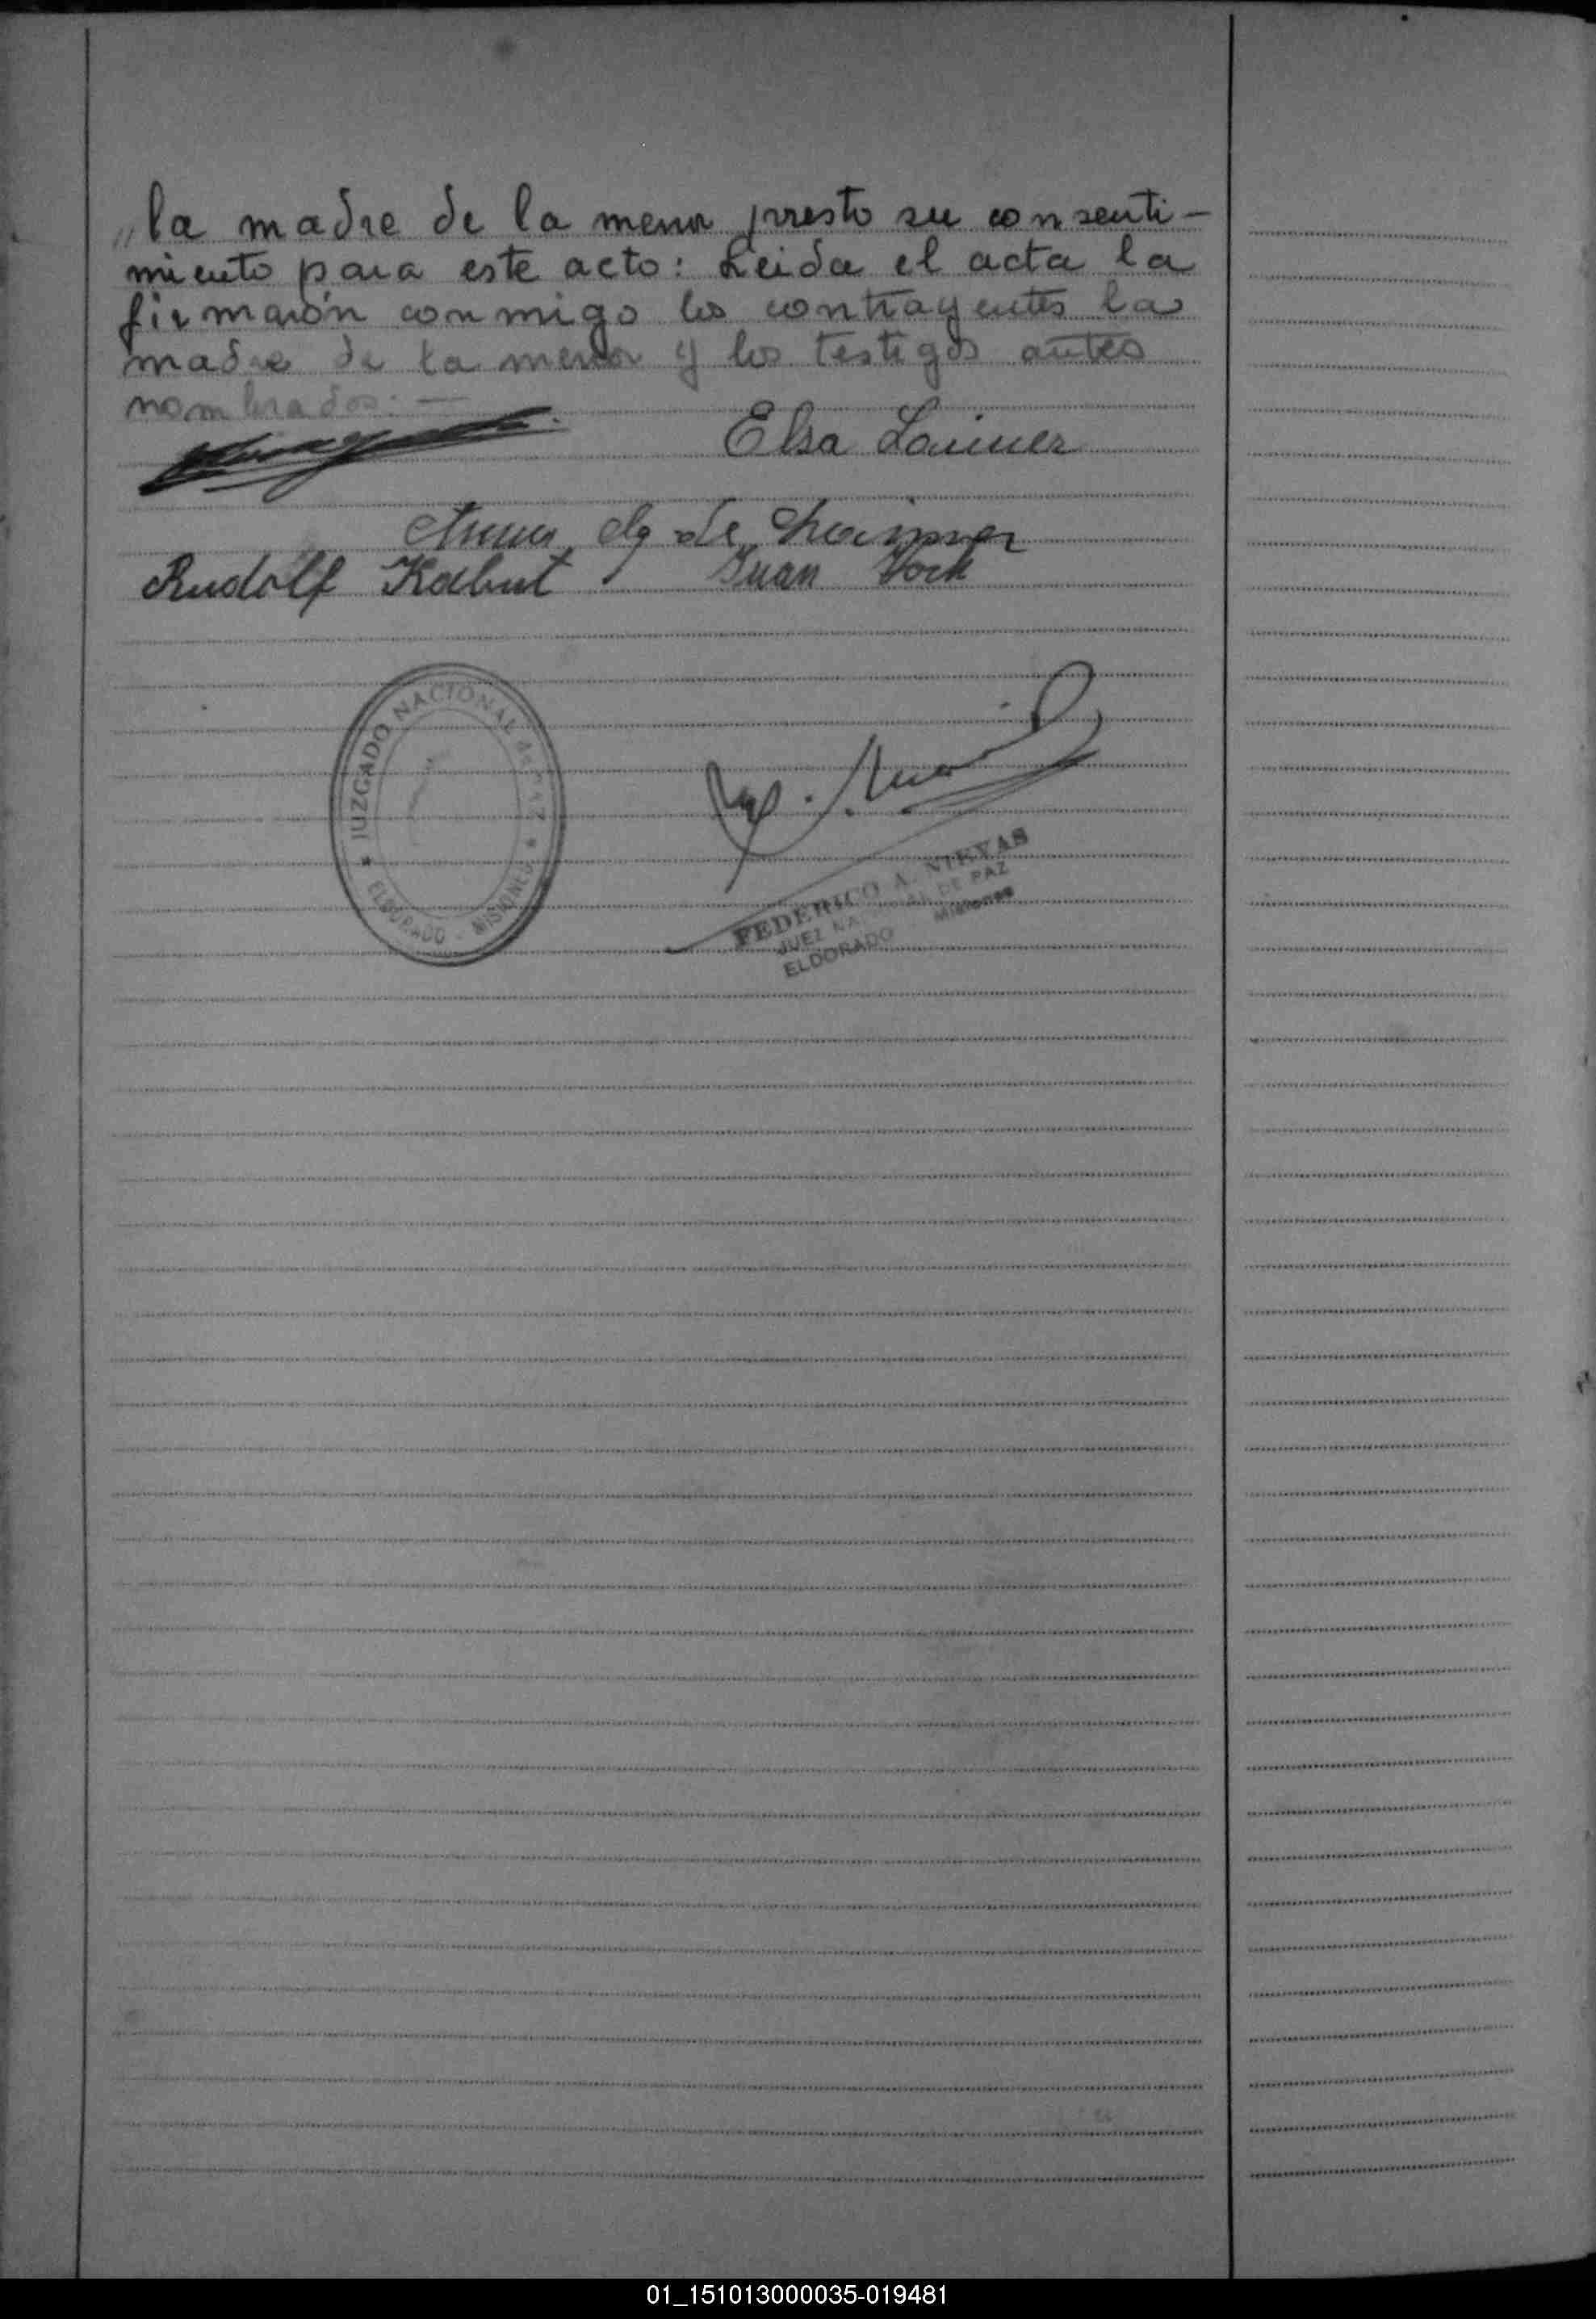 „la madre de la menor presto su consenti-
miento para este acto: Leida el acta la
firmarón conmigo los contrayentes la
madre de la menor y los testigos antes
nombrados:—
Elsa Laimer
de
Rudolf Kabut Juan Vock
JUZGADO NACIONAL DE PAZ
ELDORADO - MISIONES
FEDERICO A. NIEVAS
JUEZ NACIONAL DE PAZ
ELDORADO Misiones
01_151013000035-019481